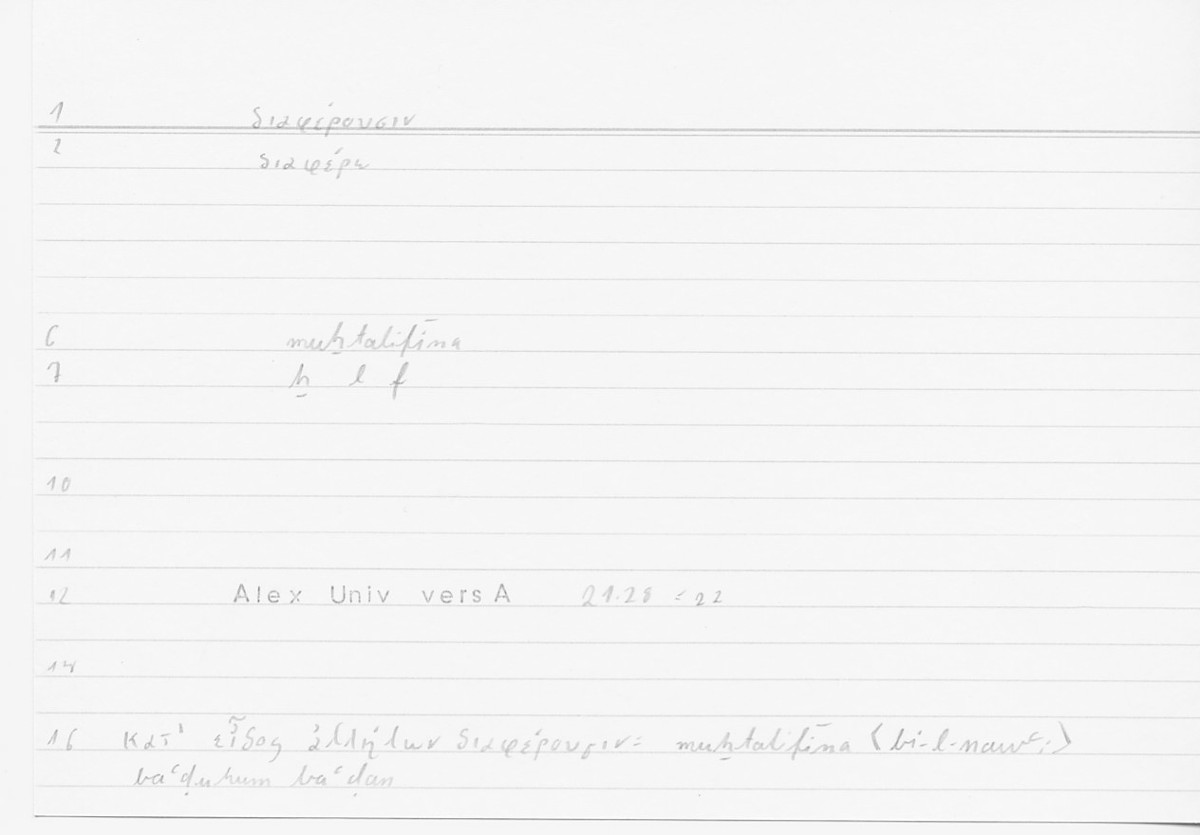 1 διαφέρουσιν
2 διαφέρω
6 muḫtalifīna
7 ḫ l f
10
11
12 Alex Univ vers A 21.28 = 22
14
16 κατ' εἶδος ἀλλήλων διαφέρουσιν: muḫtalifīna ⟨bi-l-nawʿi⟩
baʿḍuhum baʿḍan